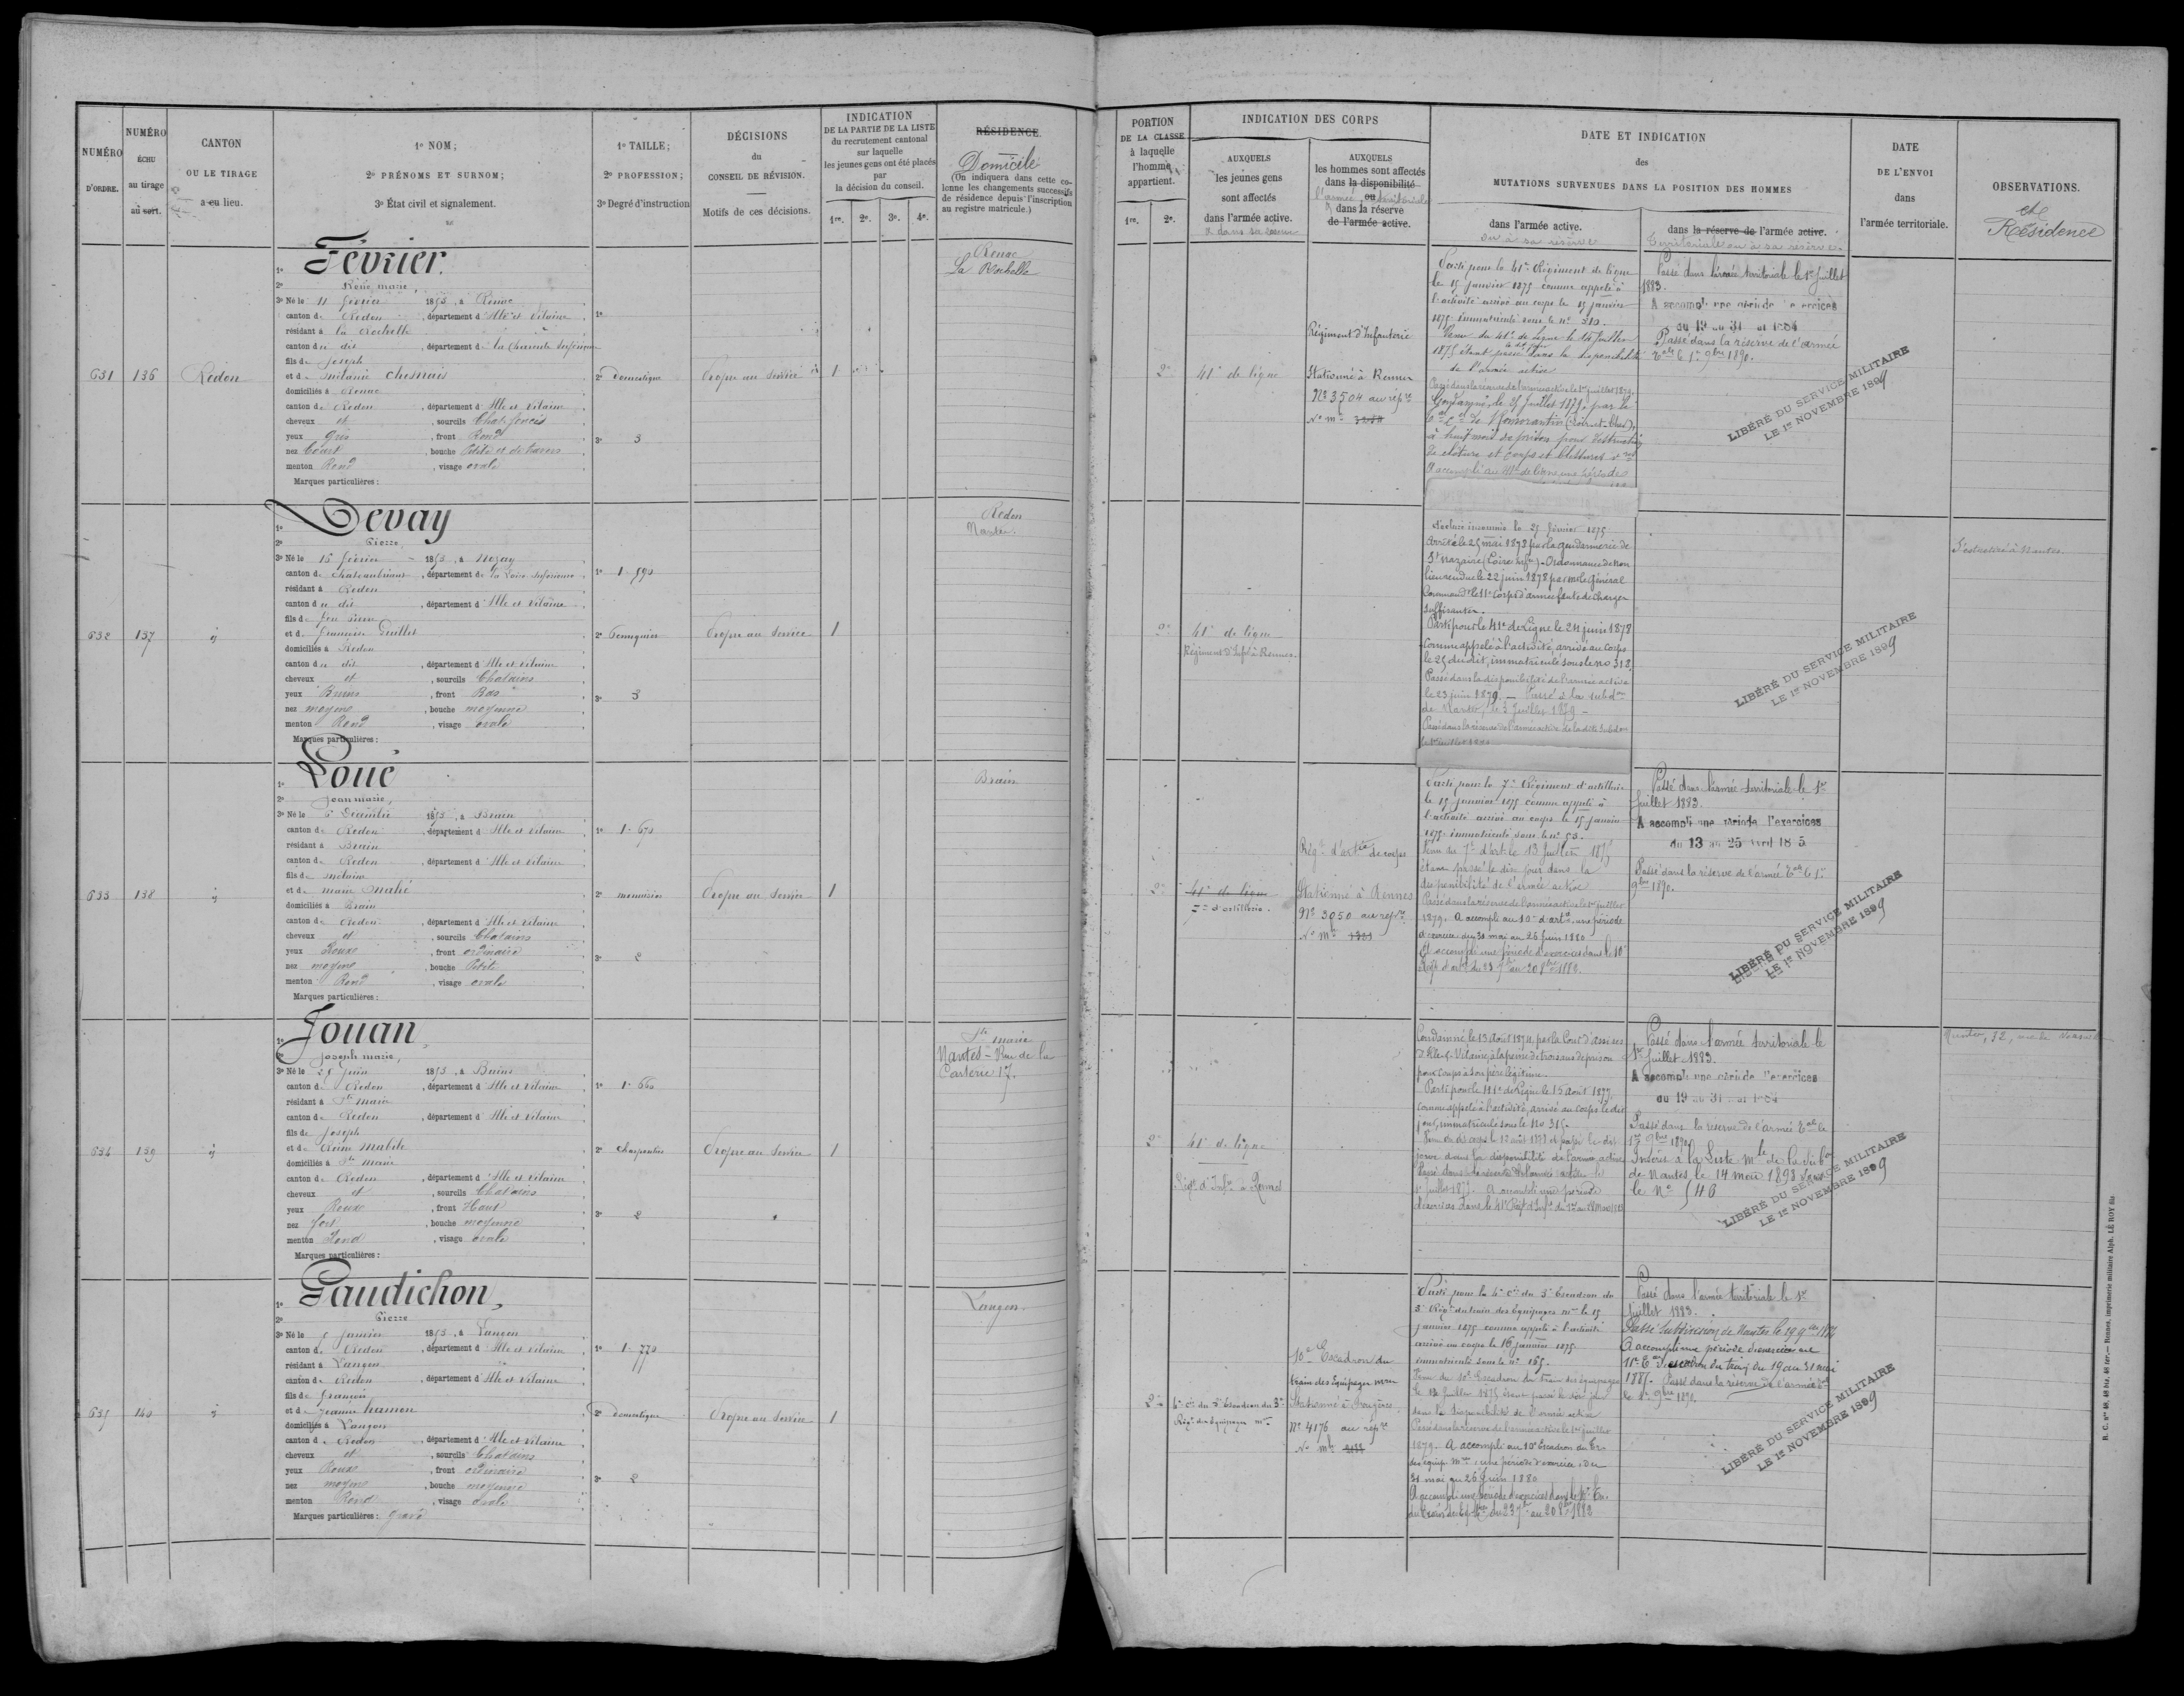 NUMÉRO
D'ORDRE.
NUMÉRO
ÉCHU
au tirage
au sort.
CANTON
OU LE TIRAGE
a eu lieu.
1º NOM;
2º PRÉNOMS ET SURNOM;
3º État civil et signalement.
1º TAILLE;
2º PROFESSION;
3º Degré d'instruction
DÉCISIONS
du
CONSEIL DE RÉVISION.
Motifs de ces décisions.
INDICATION
DE LA PARTIE DE LA LISTE
du recrutement cantonal
sur laquelle
les jeunes gens ont été placés
par
la décision du conseil.
1re. 2e. 3e. 4e.
RÉSIDENCE.
Domicile
(On indiquera dans cette co-
lonne les changements successifs
de résidence depuis l'inscription
au registre matricule.)
631 136 Redon
1º Février.
2º René marie,
3º Né le 11 février 1853, à Renac
canton de Redon, département d'Ille et Vilaine
résidant à la Rochelle
canton du dit, département de la Charente Inférieure
fils de Joseph
et de Mélanie Chesnais
domiciliés à Renac
canton de Redon, département d'Ille et Vilaine
cheveux et, sourcils Chat. foncés
yeux gris, front Rond
nez Court, bouche Petite et de travers
menton Rond, visage ovale
Marques particulières :
1º
2º domestique
3º 3
Propre au Service
1
Renac
La Rochelle
632 137 ij
1º Devay
2º Pierre,
3º Né le 15 février 1853, à Nozay
canton de Chateaubriant, département de la Loire Inférieure
résidant à Redon
canton du dit, département d'Ille et Vilaine
fils de feu Pierre
et de Guillet
domiciliés à Redon
canton du dit, département d'Ille et Vilaine
cheveux et, sourcils Chatains
yeux Bruns, front Bas
nez moyen, bouche moyenne
menton Rond, visage ovale
Marques particulières :
1º 1. 590
2º
3º 3
Propre au Service
1
Redon
Nantes.
633 138 ij
1º Loué
2º Jean marie,
3º Né le 6 Décembre 1853, à Brain
canton de Redon, département d'Ille et Vilaine
résidant à Brain
canton de Redon, département d'Ille et Vilaine
fils de
et de marie Mahé
domiciliés à Brain
canton de Redon, département d'Ille et Vilaine
cheveux et, sourcils Chatains
yeux Roux, front ordinaire
nez moyen, bouche Petite
menton Rond, visage ovale
Marques particulières :
1º 1. 670
2º menuisier
3º 2
Propre au Service
1
Brain
634 139 ij
1º Jouan
2º Joseph marie,
3º Né le 25 Juin 1853, à Bains
canton de Redon, département d'Ille et Vilaine
résidant à Ste marie
canton de Redon, département d'Ille et Vilaine
fils de Joseph
et de Reine Mabile
domiciliés à Ste marie
canton de Redon, département d'Ille et Vilaine
cheveux et, sourcils Chatains
yeux Roux, front Haut
nez fort, bouche moyenne
menton Rond, visage ovale
Marques particulières :
1º 1. 660
2º Charpentier
3º 2
Propre au Service
1
Ste marie
Nantes - Rue de la
Carterie 17.
635 140 ij
1º Gaudichon,
2º Pierre
3º Né le 5 Janvier 1853, à Langon
canton de Redon, département d'Ille et Vilaine
résidant à Langon
canton de Redon, département d'Ille et Vilaine
fils de François
et de Jeanne hamon
domiciliés à Langon
canton de Redon, département d'Ille et Vilaine
cheveux et, sourcils Chatains
yeux Roux, front ordinaire
nez moyen, bouche moyenne
menton Rond, visage ovale
Marques particulières : gravé
1º 1. 770
2º domestique
3º 2
Propre au Service
1
Langon.
PORTION
DE LA CLASSE
à laquelle
l'homme
appartient.
1re. 2e.
INDICATION DES CORPS
AUXQUELS
les jeunes gens
sont affectés
dans l'armée active.
& dans sa réserve
AUXQUELS
les hommes sont affectés
dans la disponibilité
ou
l'armée territoriale
dans la réserve
de l'armée active.
DATE ET INDICATION
des
MUTATIONS SURVENUES DANS LA POSITION DES HOMMES
dans l'armée active.
ou à sa réserve
dans la réserve de l'armée active.
territoriale ou à sa réserve.
DATE
DE L'ENVOI
dans
l'armée territoriale.
OBSERVATIONS.
et
Résidence
2e 41e de ligne
Régiment d'Infanterie
Stationné à Rennes
No 3504 au rép.re
No m.
Parti pour le 41e Régiment de ligne
le 15 janvier 1875 comme appelé à
l'activité arrivé au corps le 15 janvier
1875 immatriculé sous le no 310.
Venu du 41e de ligne le 14 Juillet
1875 étant passé le dit jour dans la disponibilité
de l'armée active
Passé dans la réserve de l'armée active le 1er juillet 1879.
Condamné, le 25 Juillet 1879, par le
de Romorantin (Loir-et-Cher),
à huit mois de prison pour destruction
de clôture et coups et blessures
A accompli au 41e de ligne une période
Passé dans l'armée territoriale le 1er Juillet
1883.
A accompli une période d'exercices
du 19 au 31 1884
Passé dans la réserve de l'armée
Tale le 1er 9bre 1890.
LIBÉRÉ DU SERVICE MILITAIRE
LE 1er NOVEMBRE 1899
2e 41e de ligne
Régiment d'Infie à Rennes.
Déclaré insoumis le 25 février 1875.
Arrêté le 25 mai 1878 par la gendarmerie de
St Nazaire (Loire Infre) - Ordonnance de non
lieu rendue le 22 juin 1878 par mr le Général
Command t le 11e Corps d'armée faute de charges
suffisantes.
Parti pour le 41e de Ligne le 24 juin 1878
comme appelé à l'activité, arrivé au corps
le 25 du dit, immatriculé sous le no 318.
Passé dans la disponibilité de l'armée active
le 23 juin 1879. - Passé à la subdon
de Nantes, le 3 Juillet 1879 -
Passé dans la réserve de l'armée active de la dite Subdon
S'est retiré à Nantes.
LIBÉRÉ DU SERVICE MILITAIRE
LE 1er NOVEMBRE 1899
2e 41e de ligne
7e d'artillerie.
Régt d'artie de corps
Stationné à Rennes
No 3050 au rép.re
No m. 1301
Parti pour le 7e Régiment d'artillerie
le 15 janvier 1875 comme appelé à
l'activité arrivé au corps le 15 janvier
1875 immatriculé sous le no 53.
Venu du 7e d'art. le 13 Juillet 1875
étant passé le dit jour dans la
disponibilité de l'armée active
Passé dans la réserve de l'armée active le 1er juillet
1879. A accompli au 10e d'artie une période
d'exercices du 31 mai au 26 Juin 1880
A accompli une période d'exercices dans le 10e
Régt d'artie du 23 7bre au 20 8bre 1882.
Passé dans l'armée territoriale le 1er
Juillet 1883.
A accompli une période d'exercices
du 13 au 25 Avril 1885
Passé dans la réserve de l'armée Tale le 1er
9bre 1890.
LIBÉRÉ DU SERVICE MILITAIRE
LE 1er NOVEMBRE 1899
2e 41e de ligne
Régt d'Infie à Rennes
Condamné le 13 Août 1874 par la Cour d'assises
d'Ille & Vilaine, à la peine de trois ans de prison
pour coups à son père légitime.
Parti pour le 41e de Ligne le 15 Août 1877
comme appelé à l'activité, arrivé au corps le dit
jour, immatriculé sous le No 315.
Passé dans la réserve de l'armée active le
1er Juillet 1879. A accompli une période
d'exercices dans le 41e Régt d'Infie du 1er au 28 Mars 1882
Passé dans l'armée territoriale le
1er Juillet 1883.
A accompli une période d'exercices
du 19 au 31 1884
Passé dans la réserve de l'armée Tale le
1er 9bre 1890.
Inscrit à la Liste mle de la Subon
de Nantes, le 14 mai 1893 sous
le No 546
LIBÉRÉ DU SERVICE MILITAIRE
LE 1er NOVEMBRE 1899
2e 4e cie du 3e Escadron du 3e
Régt des Equipages mres
10e Escadron du
train des Equipages mres
Stationné à Fougères.
No 4176 au rép.re
No mle
Parti pour la 4e cie du 3e Escadron du
3e Régt du train des Equipages mres le 15
janvier 1875 comme appelé à l'activité
arrivé au corps le 16 janvier 1875
immatriculé sous le no 165.
Venu du 10e Escadron du train des équipages
le 14 Juillet 1875 étant passé le dit jour
dans la disponibilité de l'armée active
Passé dans la réserve de l'armée active le 1er juillet
1879. A accompli au 10e Escadron du Tr.
des équip. mres une période d'exercices, du
31 mai au 26 Juin 1880
A accompli une période d'exercices dans le
du train des Eq. mres du 23 7bre au 20 8bre 1882
Passé dans l'armée territoriale le 1er
Juillet 1883.
Passé Subdivision de Nantes le 29 9bre
A accompli une période d'exercices au
11e Escadron du train du 19 au 31 mai
1885. Passé dans la réserve de l'armée Tale
le 1er 9bre 1890.
LIBÉRÉ DU SERVICE MILITAIRE
LE 1er NOVEMBRE 1899
R. C. nos 48, 48 bis, 48 ter. — Rennes, imprimerie militaire Alph. LE ROY fils